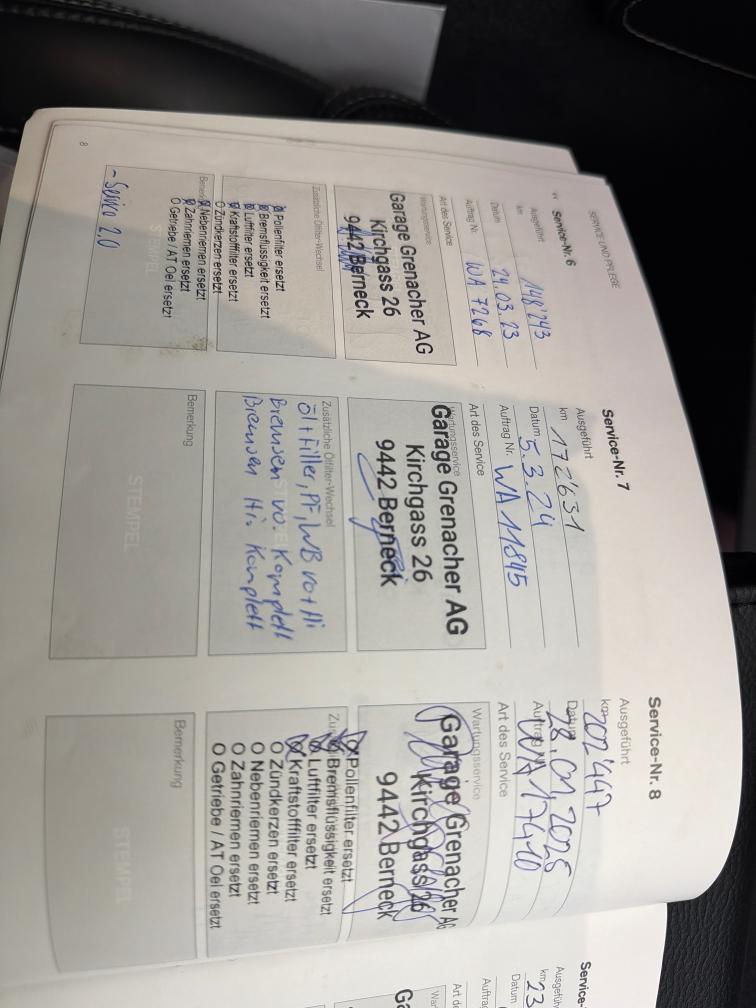 SERVICE UND PFLEGE
Service-Nr. 6
Ausgeführt
km 148'243
Datum 24.03.23
Auftrag Nr. WA 7268
Art des Service
Wartungsservice
Garage Grenacher AG
Kirchgass 26
9442 Berneck
Zusätzliche Ölfilter-Wechsel
Pollenfilter ersetzt
Bremsflüssigkeit ersetzt
Luftfilter ersetzt
Kraftstofffilter ersetzt
O Zündkerzen ersetzt
Nebenriemen ersetzt
Zahnriemen ersetzt
O Getriebe / AT Oel ersetzt
STEMPEL
- Service 2.0
8
Service-Nr. 7
Ausgeführt
km 172'631
Datum 5.3.24
Auftrag Nr. WA 11845
Art des Service
Wartungsservice
Garage Grenacher AG
Kirchgass 26
9442 Berneck
Zusätzliche Ölfilter-Wechsel
Öl+Filter, PF, WB vo+Hi
Bremsen vo. Komplett
Bremsen Hi. Komplett
Bemerkung
STEMPEL
Service-Nr. 8
Ausgeführt
km 202'447
Datum 28.01.2025
WA 17410
Art des Service
Wartungsservice
Garage Grenacher AG
Kirchgass 26
9442 Berneck
Pollenfilter ersetzt
Bremsflüssigkeit ersetzt
Luftfilter ersetzt
Kraftstofffilter ersetzt
O Zündkerzen ersetzt
O Nebenriemen ersetzt
O Zahnriemen ersetzt
O Getriebe / AT Oel ersetzt
Bemerkung
STEMPEL
Service-
Ausgefüh
km 23
Datum
Auftra
Art de
War
Ga